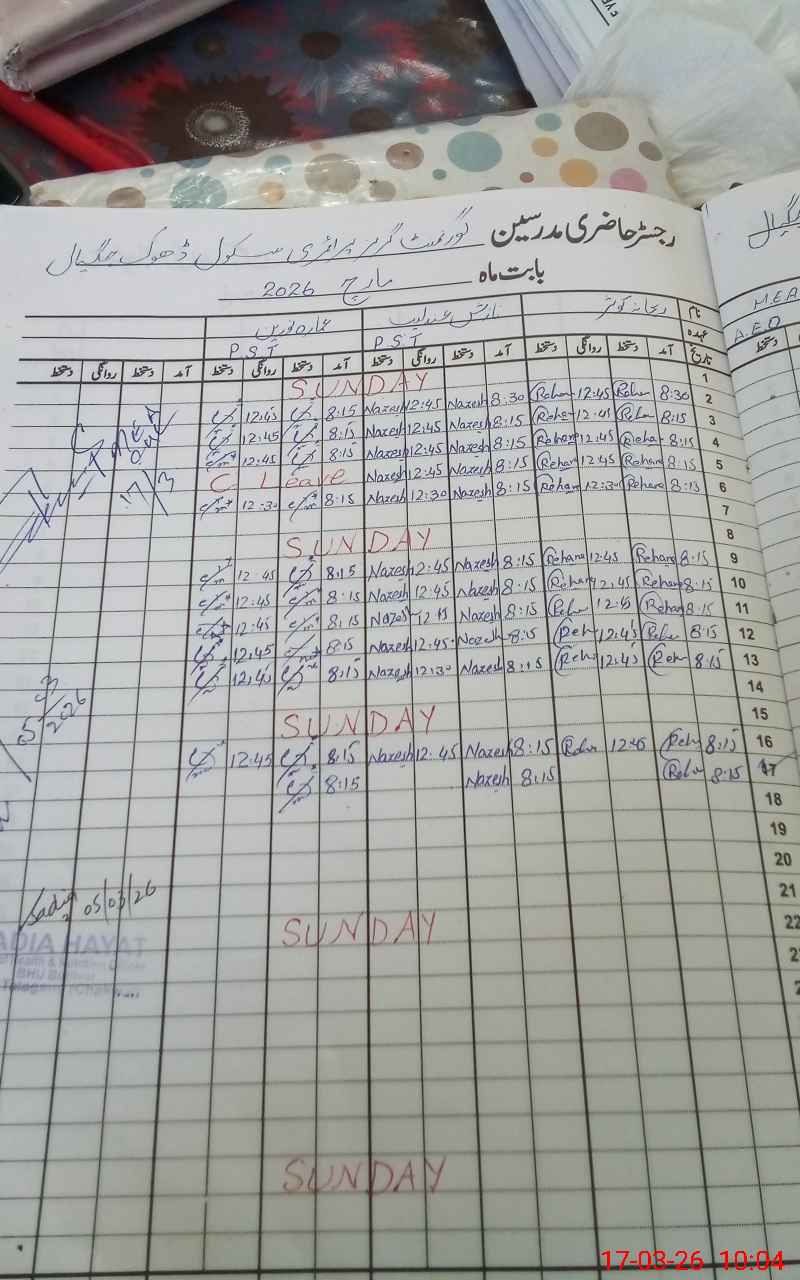 رجسٹر حاضری مدرسین گورنمنٹ گرلز پرائمری سکول ڈھوک جگیال
بابت ماہ مارچ 2026
نام ریحانہ کوثر نازش عندلیب عمارہ نورین
عہدہ P.S.T P.S.T
تاریخ آمد دستخط روانگی دستخط آمد دستخط روانگی دستخط آمد دستخط روانگی دستخط آمد دستخط روانگی دستخط
1 SUNDAY
2 8:30 Rehan 12:45 Rehan 8:30 Nazesh 12:45 Nazesh 8:15 12:45
3 8:15 Rehan 12:45 Rehan 8:15 Nazesh 12:45 Nazesh 8:15 12:45
4 8:15 Rehan 12:45 Rehan 8:15 Nazesh 12:45 Nazesh 8:15 12:45
5 8:15 Rehana 12:45 Rehan 8:15 Nazesh 12:45 Nazesh C Leave
6 8:15 Rehana 12:30 Rehan 8:15 Nazesh 12:30 Nazesh 8:15 12:30
7
8 SUNDAY
9 8:15 Rehana 12:45 Rehana 8:15 Nazesh 12:45 Nazesh 8:15 12:45
10 8:15 Rehana 12:45 Rehana 8:15 Nazesh 12:45 Nazesh 8:15 12:45
11 8:15 Rehan 12:45 Rehan 8:15 Nazesh 12:45 Nazesh 8:15 12:45
12 8:15 Rehan 12:45 Reh 8:15 Nazesh 12:45 Nazesh 8:15 12:45
13 8:15 Reh 12:45 Reh 8:15 Nazesh 12:30 Nazesh 8:15 12:45
14
15 SUNDAY
16 8:15 Reh 12:45 Rehan 8:15 Nazesh 12:45 Nazesh 8:15 12:45
17 8:15 Rehan 8:15 Nazesh 8:15
18
19
20
21
22 SUNDAY
SUNDAY
17/3
5/3/2026
Sadia 05/03/26
ADIA HAYAT
BHU
M.E.A
A.E.O
دستخط
17-03-26 10:04